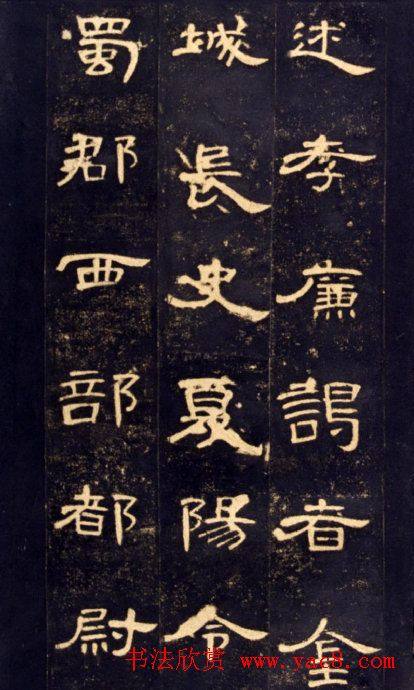 述孝廉謁者金
城長史夏陽令
蜀郡西部都尉
书法欣赏 www.yac8.com